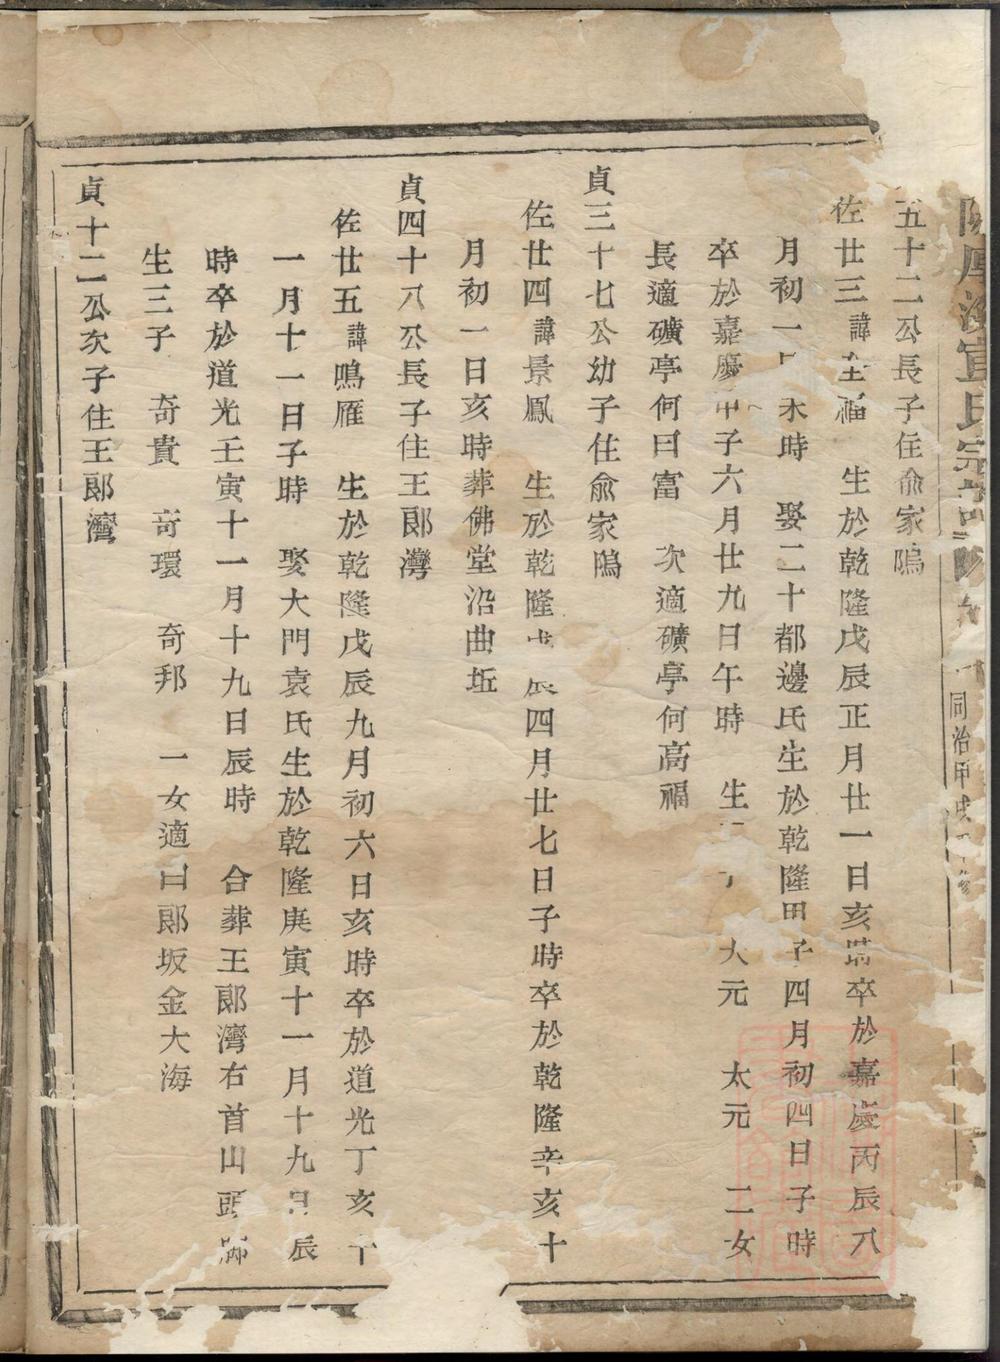 宜氏宗
同治甲戌
五十二公長子住俞家鴋
佐廿三諱 福 生於乾隆戊辰正月廿一日亥時卒於嘉慶丙辰八
月初一日未時 娶二十都邊氏生於乾隆甲子四月初四日子時
卒於嘉慶甲子六月廿九日午時 生 大元 太元 二女
長適礦亭何曰富 次適礦亭何高福
貞三十七公幼子住俞家鴋
佐廿四諱景鳳 生於乾隆戊辰四月廿七日子時卒於乾隆辛亥十
月初一日亥時葬佛堂沿曲坵
貞四十八公長子住王郞灣
佐廿五諱鳴雁 生於乾隆戊辰九月初六日亥時卒於道光丁亥十
一月十一日子時 娶大門袁氏生於乾隆庚寅十一月十九日辰
時卒於道光壬寅十一月十九日辰時 合葬王郞灣右首山頭脚
生三子 奇貴 奇環 奇邦 一女適白郞坂金大海
貞十二公次子住王郞灣